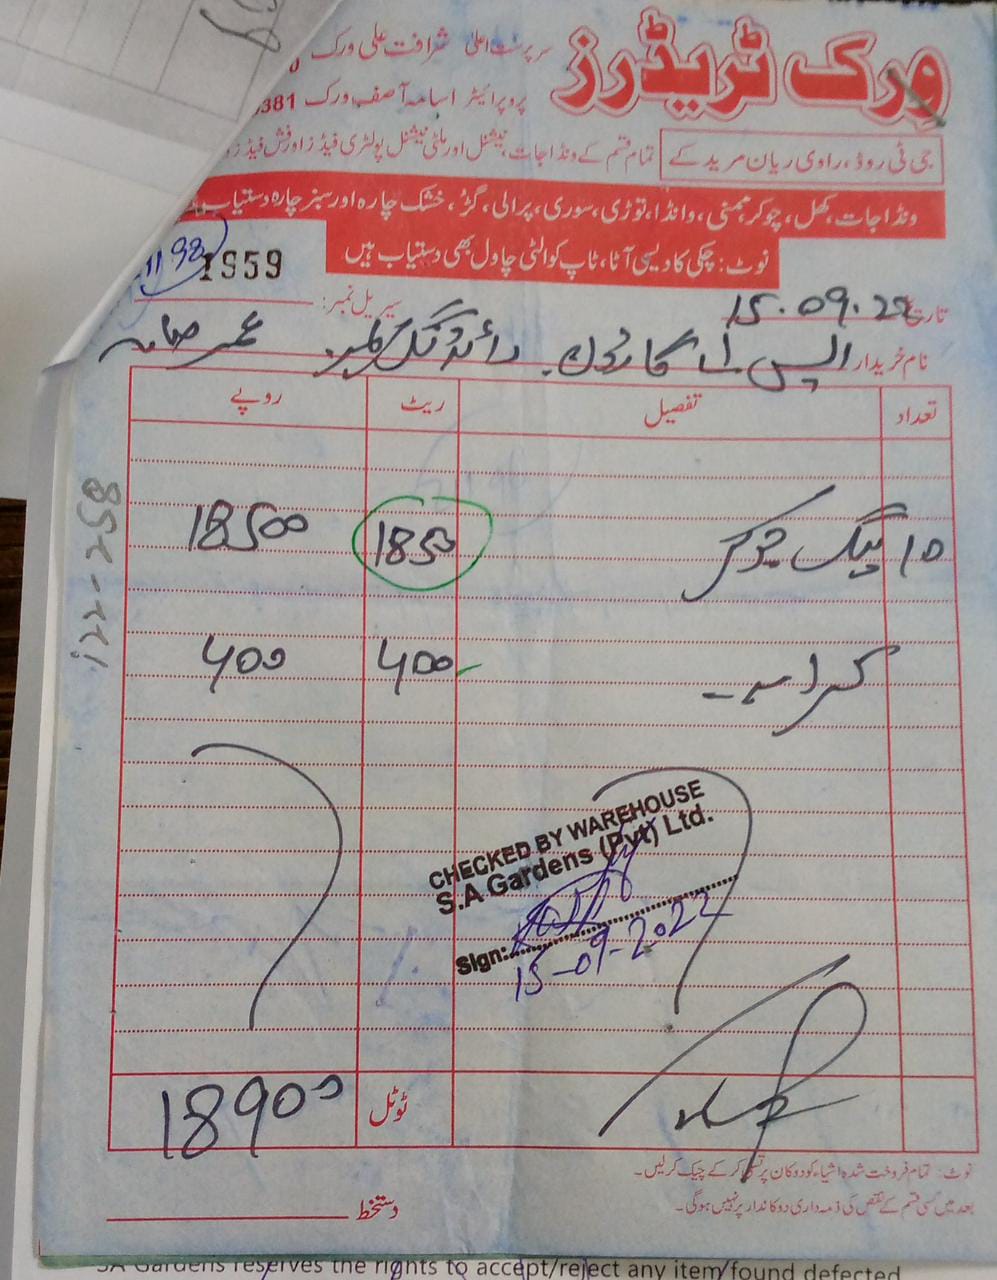 ورک ٹریڈرز
سرپرست اعلیٰ شرافت علی ورک
پروپرائیٹر اسامہ آصف ورک 381
جی ٹی روڈ، راوی ریان مریدکے
تمام قسم کے ونڈا جات، نیشنل اور ملٹی نیشنل پولٹری فیڈز اور فش فیڈز
ونڈا جات، کھل، چوکر، ممنی، وانڈا، توڑی، سوری، پرالی، گڑ، خشک چارہ اور سبز چارہ دستیاب
نوٹ: چکی کا دیسی آٹا، ٹاپ کوالٹی چاول بھی دستیاب ہیں
1193
1959
سیریل نمبر:
تاریخ 15.09.22
نام خریدار ایس اے گارڈن
تعداد تفصیل ریٹ روپے
10 بیگ چوکر 1850 18500
کرایہ 400 400
i22-258
CHECKED BY WAREHOUSE
S.A Gardens (Pvt) Ltd.
Sign:
15-09-2022
ٹوٹل 18900
نوٹ: تمام فروخت شدہ اشیاء کو دوکان پر تسلی کر کے چیک کر لیں۔
بعد میں کسی قسم کے نقص کی ذمہ داری دوکاندار پر نہیں ہوگی۔
دستخط
SA Gardens reserves the rights to accept/reject any item found defected